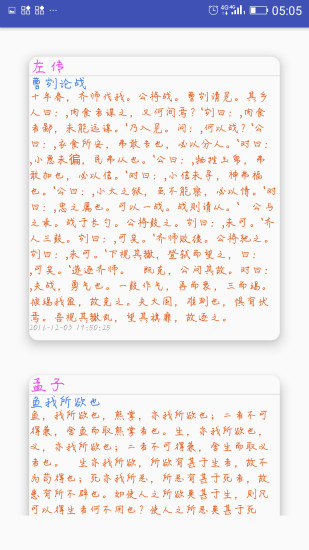 4G 4G 05:05
左传
曹刿论战
十年春，齐师伐我。公将战。曹刿请见。其乡
人曰：‚肉食者谋之，又何间焉？‛刿曰：‚肉食
者鄙，未能远谋。‛乃入见。问：‚何以战？‛公
曰：‚衣食所安，弗敢专也，必以分人。‛对曰：
‚小惠未徧，民弗从也。‛公曰：‚牺牲玉帛，弗
敢加也，必以信。‛对曰：‚小信未孚，神弗福
也。‛公曰：‚小大之狱，虽不能察，必以情。‛对
曰：‚忠之属也。可以一战。战则请从。‛ 公与
之乘。战于长勺。公将鼓之。刿曰：‚未可。‛齐
人三鼓。刿曰：‚可矣。‛齐师败绩。公将驰之。
刿曰：‚未可。‛下视其辙，登轼而望之，曰：
‚可矣。‛遂逐齐师。 既克，公问其故。对曰：
‚夫战，勇气也。一鼓作气，再而衰，三而竭。
彼竭我盈，故克之。夫大国，难测也，惧有伏
焉。吾视其辙乱，望其旗靡，故逐之。
2016-12-03 17:50:25
孟子
鱼我所欲也
鱼，我所欲也，熊掌，亦我所欲也；二者不可
得兼，舍鱼而取熊掌者也。生，亦我所欲也，
义，亦我所欲也；二者不可得兼，舍生而取义
者也。 生亦我所欲，所欲有甚于生者，故不
为苟得也；死亦我所恶，所恶有甚于死者，故
患有所不辟也。如使人之所欲莫甚于生，则凡
可以得生者何不用也？使人之所恶莫甚于死